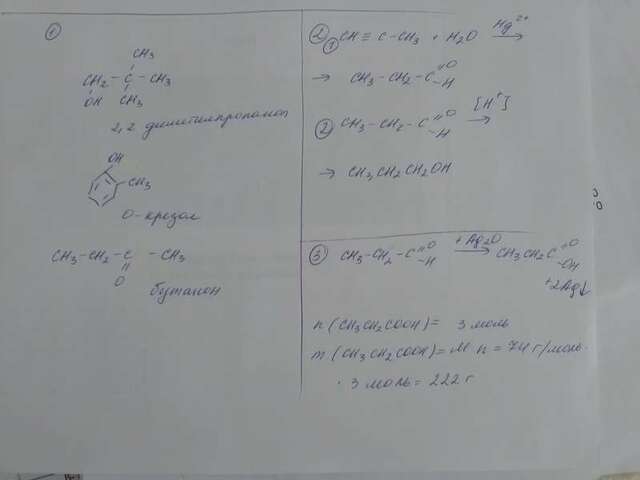 ①
CH3
CH2 - C - CH3
OH CH3
2,2 диметилпропанол
OH
CH3
О-крезол
CH3 - CH2 - C - CH3
O
бутанон
② ① CH ≡ C - CH3 + H2O Hg2+ →
→ CH3 - CH2 - C =O -H
② CH3 - CH2 - C =O -H [H+] →
→ CH3CH2CH2OH
③ CH3 - CH2 - C =O -H +Ag2O → CH3CH2C =O -OH
+2Ag↓
n (CH3CH2COOH) = 3 моль
m (CH3CH2COOH) = M·n = 74 г/моль ·
· 3 моль = 222 г